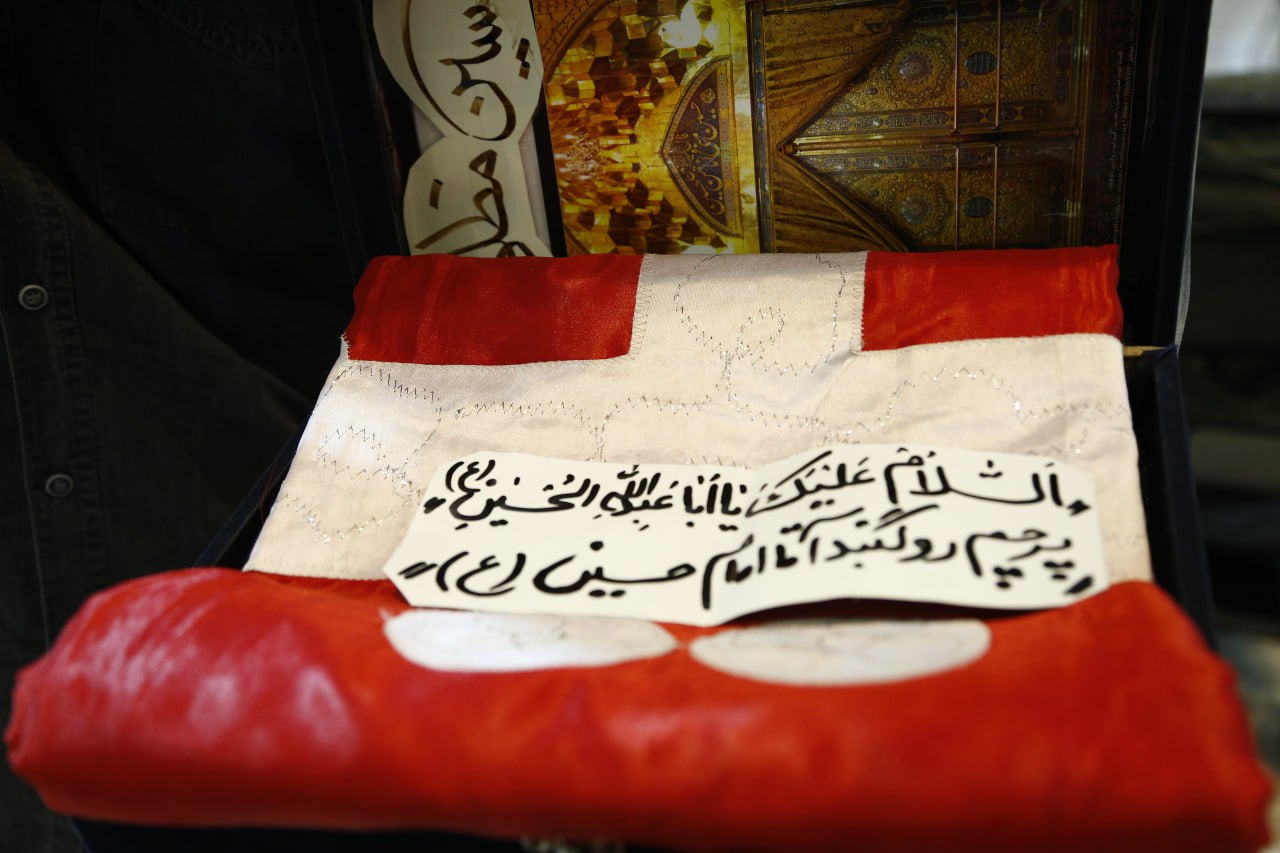 حسین
مظلوم
«اَلسَّلامُ عَلَیْکَ یٰا اَبٰا عَبْدِاللّٰهِ الْحُسَیْنِ (ع)»
«پرچم رو گنبد آقا امام حسین (ع)»